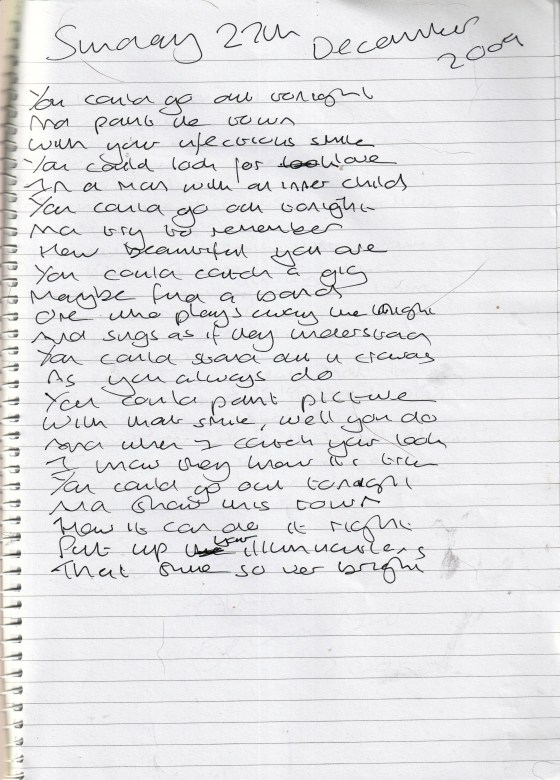 Sunday 27th December 2009
You could go out tonight
And paint the town
With your infectious smile
You could look for love
In a man with an inner child
You could go out tonight
And try to remember
How beautiful you are
You could catch a gig
Maybe find a band
One who plays away the night
And sings as if they understand
You could stand out in crowds
As you always do
You could paint picture
With that smile, well you do
And when I catch your look
I know they know it's true
You could go out tonight
And show this town
How it can do it right
Put up your illuminations
That shine so very bright